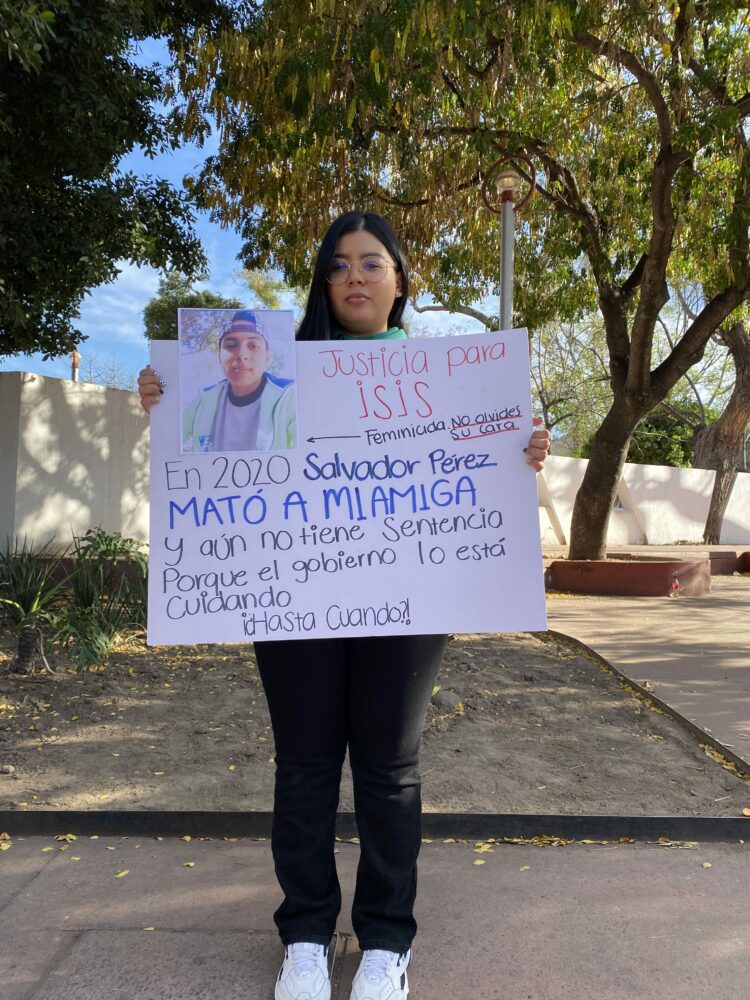 Justicia para
ISIS
Feminicida. No olvides
su cara
En 2020 Salvador Pérez
MATÓ A MI AMIGA
Y aún no tiene Sentencia
Porque el gobierno lo está
Cuidando
¡¿Hasta Cuando?!